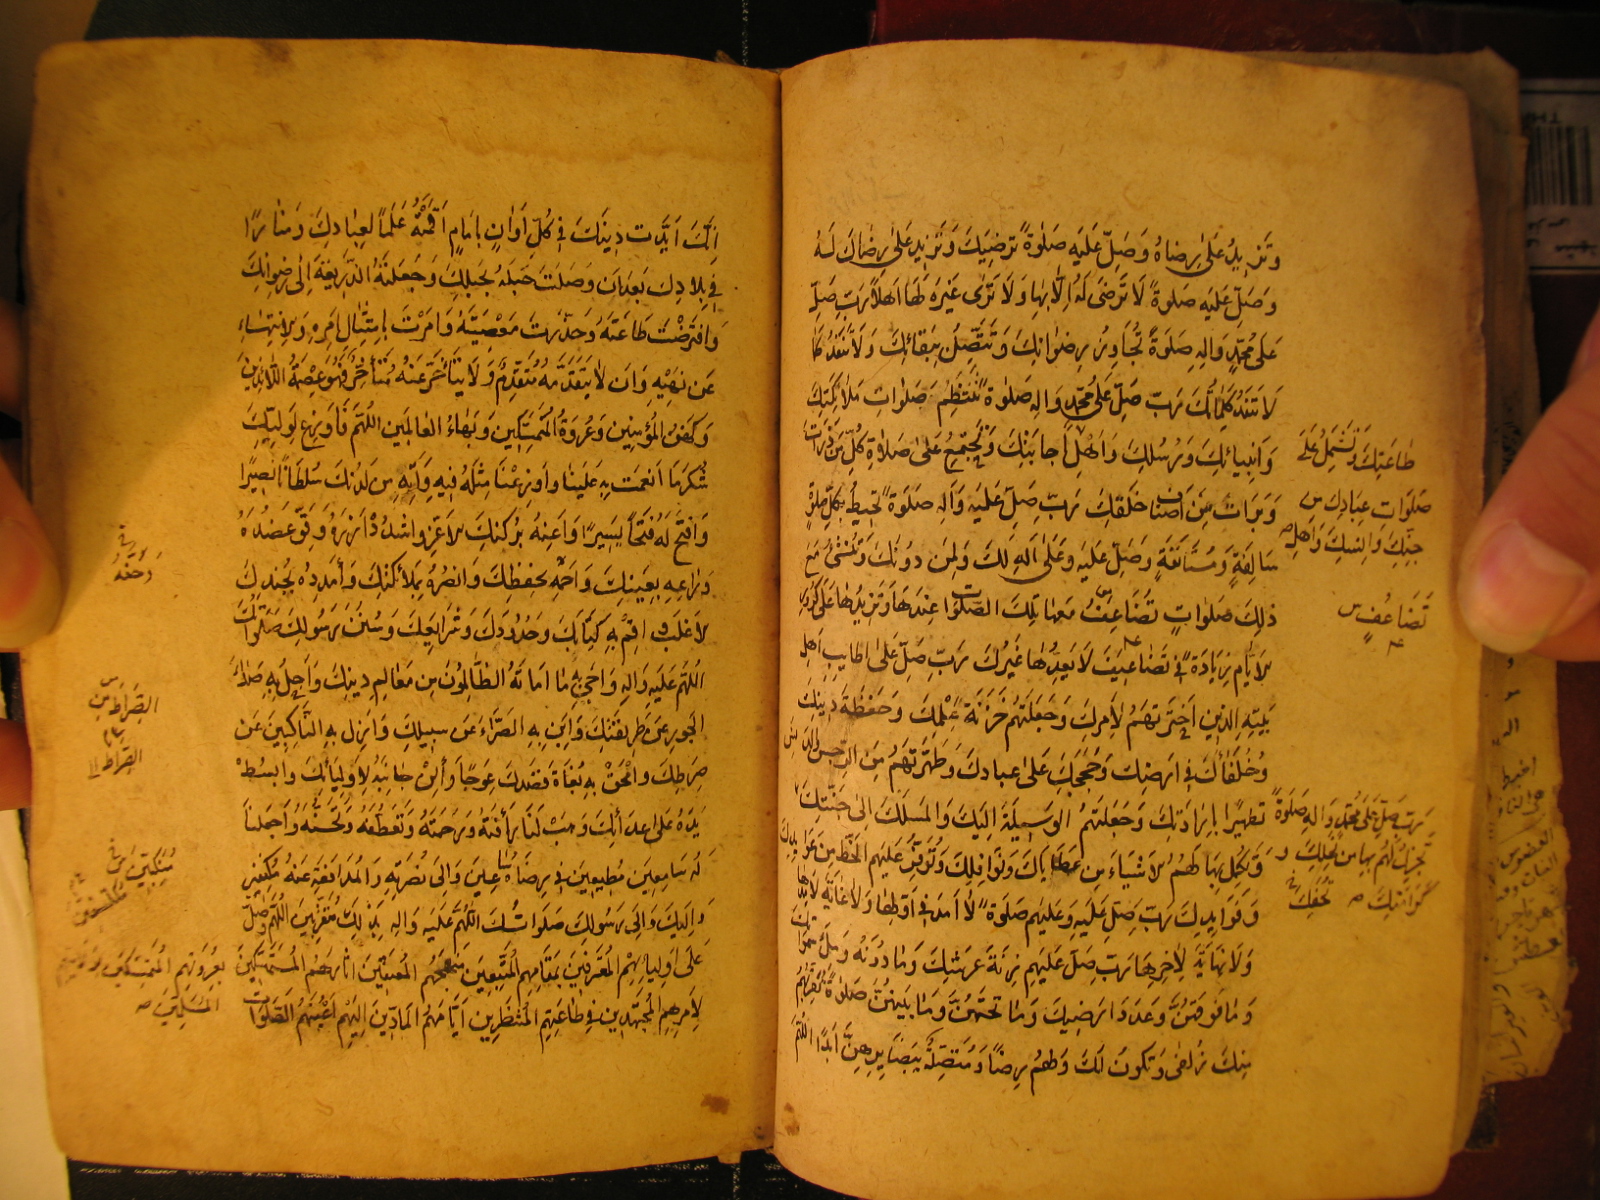 وَتَزِيدُ عَلىٰ رِضاهُ وَصَلِّ عَلَيهِ صَلوٰةً تُرضيكَ وَتَزيد عَلىٰ رِضاكَ لَهُ
وَصَلِّ عَلَيهِ صَلوٰةً لا تَرضىٰ لَهُ اِلّا بِها وَلا تَرىٰ غَيرَهُ لَها اَهلاً رَبِّ صَلِّ
عَلىٰ مُحَمَّدٍ وَالِهِ صَلوٰةً تُجاوِزُ رِضوانَكَ وَتَتَّصِلُ بِبَقائِكَ وَلا تَنفَدُ كَما
لا تَنفَدُ كَلِماتُكَ رَبِّ صَلِّ عَلىٰ مُحَمَّدٍ وَالِهِ صَلوٰةً تَنتَظِمُ صَلَواتِ مَلائِكَتِكَ
وَاَنبِيائِكَ وَرُسُلِكَ وَاَهلِ اِجابَتِكَ وَتَجتَمِعُ عَلىٰ صَلاةِ كُلِّ مَن ذَرَأتَ
وَبَرَأتَ مِن اَصنافِ خَلقِكَ رَبِّ صَلِّ عَلَيهِ وَآلِهِ صَلَوةً تُحيطُ بِكُلِّ صَلوةٍ
سالِفَةٍ وَمُستَأنَفَةٍ وَصَلِّ عَلَيهِ وَعَلىٰ آلِهِ لَكَ وَلِمَن دونَكَ وَتُنشِئُ مَعَ
ذٰلِكَ صَلَواتٍ تُضاعِفُ مَعَها تِلكَ الصَّلَواتِ عِندَها وَتَزيدُها عَلىٰ كُرورِ
الاَيّامِ زِيادَةً في تَضاعيفَ لا يَعُدُّها غَيرُكَ رَبِّ صَلِّ عَلىٰ اَطايِبِ اَهلِ
بَيتِهِ الَّذينَ اختَرتَهُم لِاَمرِكَ وَجَعَلتَهُم خَزَنَةَ عِلمِكَ وَحَفَظَةَ دينِكَ
وَخُلَفاءَكَ في اَرضِكَ وَحُجَجَكَ عَلىٰ عِبادِكَ وَطَهَّرتَهُم مِنَ الرِّجسِ وَالدَّنَسِ
تَطهيرًا بِاِرادَتِكَ وَجَعَلتَهُمُ الوَسيلَةَ اِلَيكَ وَالمَسلَكَ اِلىٰ جَنَّتِكَ
وَتُكمِلُ بِها لَهُمُ الاَشياءَ مِن عَطاياكَ وَنَوافِلِكَ وَتُوَفِّرُ عَلَيهِمُ الحَظَّ مِن عَوائِدِكَ
وَفَوائِدِكَ رَبِّ صَلِّ عَلَيهِ وَعَلَيهِم صَلوةً لا اَمَدَ في اَوَّلِها وَلا غايَةَ لِاَمَدِها
وَلا نِهايَةَ لِآخِرِها رَبِّ صَلِّ عَلَيهِم زِنَةَ عَرشِكَ وَما دونَهُ وَمِلءَ سَمٰواتِكَ
وَما فَوقَهُنَّ وَعَدَدَ اَرَضيكَ وَما تَحتَهُنَّ وَما بَينَهُنَّ صَلوٰةً تُقَرِّبُهُم
مِنكَ زُلفىٰ وَتَكونُ لَكَ وَلَهُم رِضًا وَمُتَّصِلَةً بِنَظائِرِهِنَّ اَبَدًا اَللّهُمَّ
طاعَتِكَ وَتَشتَمِلُ عَلىٰ
صَلَواتِ عِبادِكَ مِن
جِنِّكَ وَاِنسِكَ وَاَهلِ
تُضاعِفُ س
رَبِّ صَلِّ عَلىٰ مُحَمَّدٍ وَالِهِ صَلوةً
تُجزِلُ لَهُم بِها مِن نِحَلِكَ وَ
كَرامَتِكَ تُحَفِكَ
اِنَّكَ اَيَّدتَ دينَكَ في كُلِّ اَوانٍ بِاِمامٍ اَقَمتَهُ عَلَماً لِعِبادِكَ وَمَنارًا
في بِلادِكَ بَعدَ اَن وَصَلتَ حَبلَهُ بِحَبلِكَ وَجَعَلتَهُ الذَّريعَةَ اِلىٰ رِضوانِكَ
وَافتَرَضتَ طاعَتَهُ وَحَذَّرتَ مَعصِيَتَهُ وَاَمَرتَ بِامتِثالِ اَمرِهِ وَالاِنتِهاءِ
عَن نَهيِهِ وَاَن لا يَتَقَدَّمَهُ مُتَقَدِّمٌ وَلا يَتَأَخَّرَ عَنهُ مُتَأَخِّرٌ فَهُوَ عِصمَةُ اللّائِذينَ
وَكَهفُ المُؤمِنينَ وَعُروَةُ المُتَمَسِّكينَ وَبَهاءُ العالَمينَ اَللّهُمَّ فَاَوزِع لِوَلِيِّكَ
شُكرَ ما اَنعَمتَ بِهِ عَلَينا وَاَوزِعنا مِثلَهُ فيهِ وَآتِهِ مِن لَدُنكَ سُلطاناً نَصيرًا
وَافتَح لَهُ فَتحاً يَسيرًا وَاَعِنهُ بِرُكنِكَ الاَعَزِّ وَاشدُد اَزرَهُ وَقَوِّ عَضُدَهُ
وَراعِهِ بِعَينِكَ وَاحمِهِ بِحِفظِكَ وَانصُرهُ بِمَلائِكَتِكَ وَأَمدِدهُ بِجُندِكَ
الاَغلَبِ وَاَقِم بِهِ كِتابَكَ وَحُدودَكَ وَشَرايِعَكَ وَسُنَنَ رَسولِكَ صَلَواتُكَ
اللّهُمَّ عَلَيهِ وَالِهِ وَاَحيِ بِهِ ما اَماتَهُ الظّالِمونَ مِن مَعالِمِ دينِكَ وَاجلُ بِهِ صَداءَ
الجَورِ عَن طَريقَتِكَ وَاَبِن بِهِ الضَّرّاءَ عَن سَبيلِكَ وَاَزِل بِهِ النّاكِبينَ عَن
صِراطِكَ وَامحَق بِهِ بُغاةَ قَصدِكَ عِوَجاً وَأَلِن جانِبَهُ لِاَولِيائِكَ وَابسُط
يَدَهُ عَلىٰ اَعدائِكَ وَهَب لَنا رَأفَتَهُ وَرَحمَتَهُ وَتَعَطُّفَهُ وَتَحَنُّنَهُ وَاجعَلنا
لَهُ سامِعينَ مُطيعينَ في رِضاهُ ساعينَ وَاِلىٰ نُصرَتِهِ وَالمُدافَعَةِ عَنهُ مُكنِفينَ
وَاِلَيكَ وَاِلىٰ رَسولِكَ صَلَواتُكَ اللّهُمَّ عَلَيهِ وَالِهِ بِذٰلِكَ مُتَقَرِّبينَ اللّهُمَّ وَصَلِّ
عَلىٰ اَولِيائِهِمُ المُعتَرِفينَ بِمَقامِهِمُ المُتَّبِعينَ مَنهَجَهُمُ المُقتَفينَ آثارَهُمُ المُستَمسِكينَ
لِاَمرِهِمُ المُجتَهِدينَ في طاعَتِهِمُ المُنتَظِرينَ اَيّامَهُمُ المادّينَ اِلَيهِم اَعيُنَهُمُ الصَّلَواتِ
الصِّراطِ س
الصِّراط
بِعُروَتِهِم المُتَمَسِّكينَ
المُسَلِّمينَ